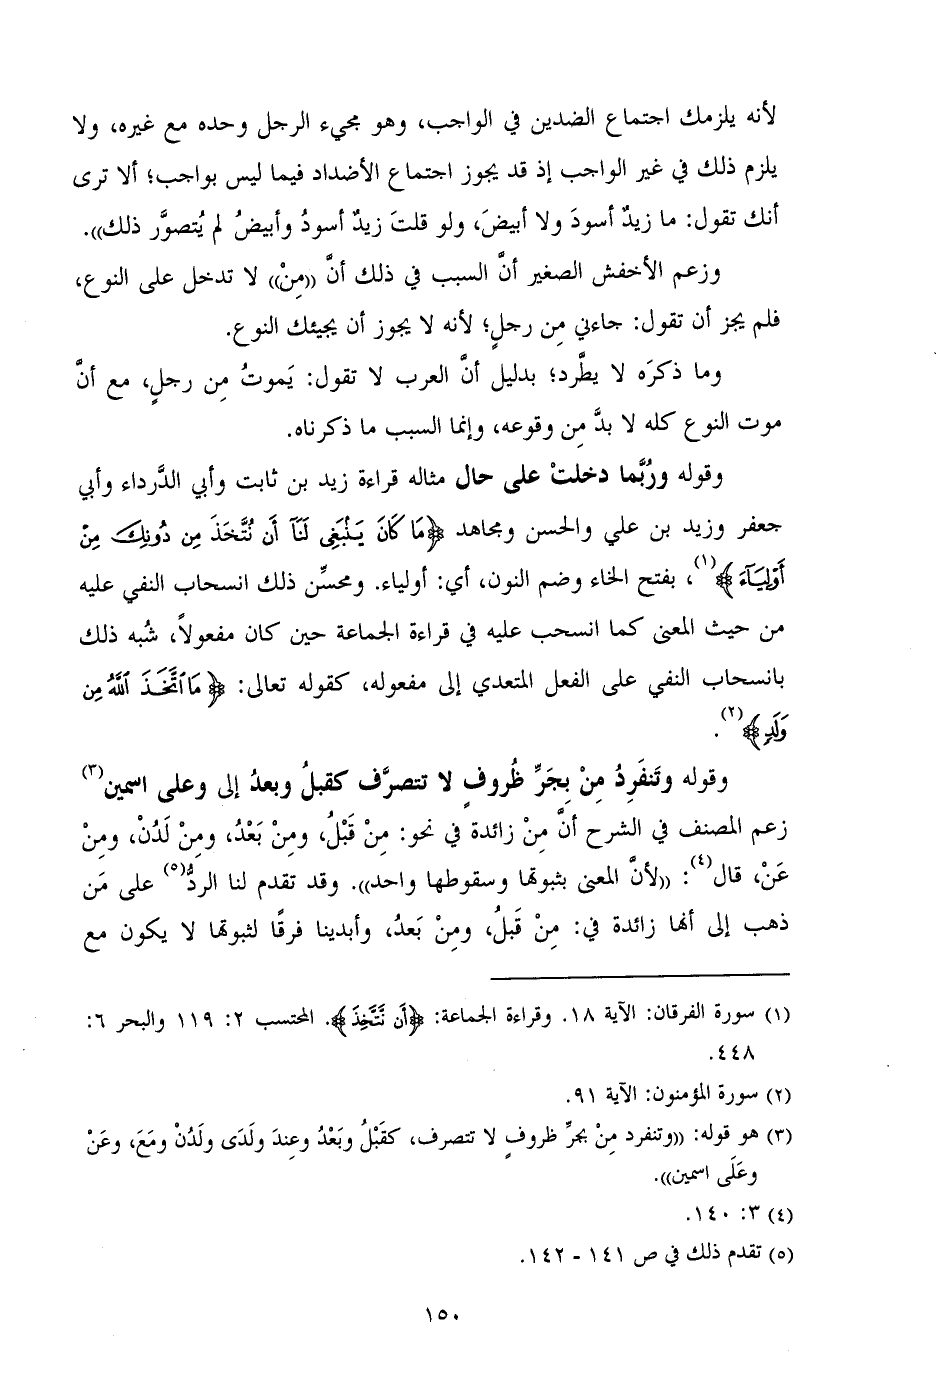 لأنه يلزمك اجتماع الضدين في الواجب، وهو مجيء الرجل وحده مع غيره، ولا
يلزم ذلك في غير الواجب إذ قد يجوز اجتماع الأضداد فيما ليس بواجب؛ ألا ترى
أنك تقول: ما زيدٌ أسودَ ولا أبيضَ، ولو قلتَ زيدٌ أسودُ وأبيضُ لم يُتصوَّر ذلك)).
وزعم الأخفش الصغير أنَّ السبب في ذلك أنَّ ((مِنْ)) لا تدخل على النوع،
فلم يجز أن تقول: جاءني مِن رجلٍ؛ لأنه لا يجوز أن يجيئك النوع.
وما ذكرَه لا يطَّرد؛ بدليل أنَّ العرب لا تقول: يَموتُ مِن رجلٍ، مع أنَّ
موت النوع كله لا بدَّ مِن وقوعه، وإنما السبب ما ذكرناه.
وقوله ورُبَّما دخلتْ على حال مثاله قراءة زيد بن ثابت وأبي الدَّرداء وأبي
جعفر وزيد بن علي والحسن ومجاهد ﴿مَا كَانَ يَنۢبَغِى لَنَآ أَن نُتَّخَذَ مِن دُونِكَ مِنْ
أَوْلِيَآءَ﴾(١)، بفتح الخاء وضم النون، أي: أولياء. ومحسِّن ذلك انسحاب النفي عليه
من حيث المعنى كما انسحب عليه في قراءة الجماعة حين كان مفعولاً، شُبه ذلك
بانسحاب النفي على الفعل المتعدي إلى مفعوله، كقوله تعالى: ﴿مَا ٱتَّخَذَ ٱللَّهُ مِن
وَلَدٍ﴾(٢).
وقوله وتَنفَرِدُ مِنْ بِجَرِّ ظُروفٍ لا تتصرَّف كقبلُ وبعدُ إلى وعلى اسمين(٣)
زعم المصنف في الشرح أنَّ مِنْ زائدة في نحو: مِنْ قَبْلُ، ومِنْ بَعْدُ، ومِنْ لَدُنْ، ومِنْ
عَنْ، قال(٤): ((لأنَّ المعنى بثبوتها وسقوطها واحد)). وقد تقدم لنا الردُّ(٥) على مَن
ذهب إلى أنها زائدة في: مِنْ قَبلُ، ومِنْ بَعدُ، وأبدينا فرقًا لثبوتها لا يكون مع
(١) سورة الفرقان: الآية ١٨. وقراءة الجماعة: ﴿أَن نَّتَّخِذَ﴾. المحتسب ٢: ١١٩ والبحر ٦:
٤٤٨.
(٢) سورة المؤمنون: الآية ٩١.
(٣) هو قوله: ((وتنفرد مِنْ بجرِّ ظروفٍ لا تتصرف، كقَبْلُ وبَعْدُ وعِندَ ولَدَى ولَدُنْ ومَعَ، وعَنْ
وعَلَى اسمين)).
(٤) ٣: ١٤٠.
(٥) تقدم ذلك في ص ١٤١ - ١٤٢.
١٥٠